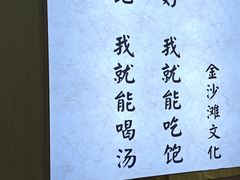 金沙滩文化
我就能吃饱
我就能喝汤